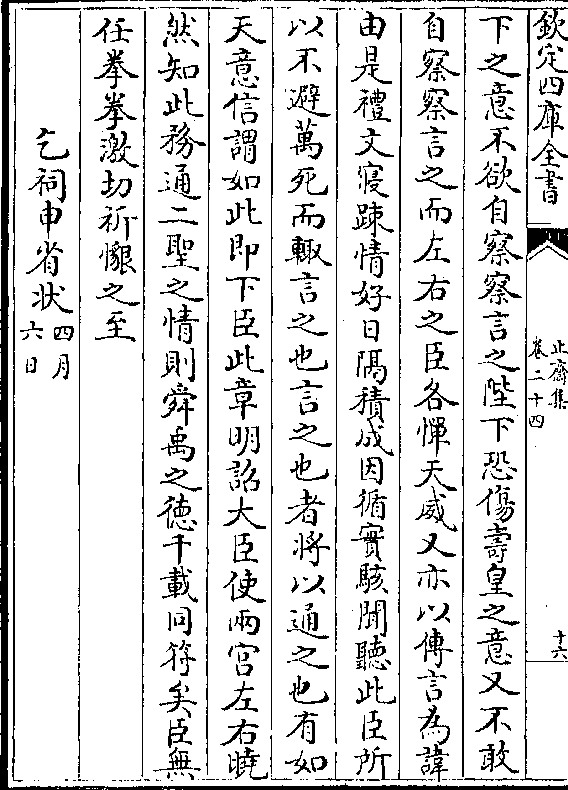 欽定四庫全書
止齋集
卷二十四
十六
下之意不欲自察察言之陛下恐傷壽皇之意又不敢
自察察言之而左右之臣各憚天威又亦以傳言為諱
由是禮文寖踈情好日隔積成因循實駭聞聽此臣所
以不避萬死而輙言之也言之也者將以通之也有如
天意信謂如此即下臣此章明詔大臣使兩宫左右曉
然知此務通二聖之情則舜禹之德千載同符矣臣無
任拳拳激切祈懇之至
乞祠申省狀四月
六日